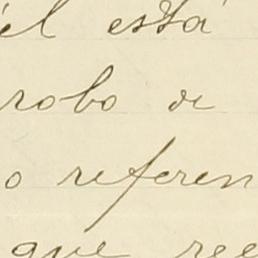 él está
robo de
o referen
que ree